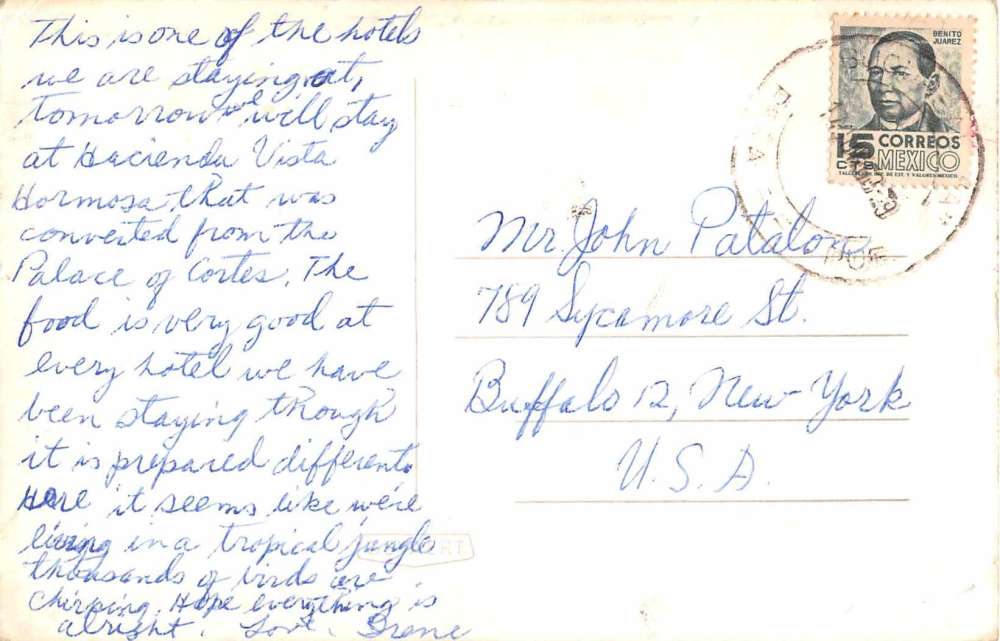 This is one of the hotels
we are staying at,
tomorrow we will stay
at Hacienda Vista
Hormosa, that was
converted from the
Palace of Cortes. The
food is very good at
every hotel we have
been staying though
it is prepared different.
Here it seems like we're
living in a tropical jungle
thousands of birds are
chirping. Hope everything is
alright. Love,
BENITO
JUAREZ
15 CORREOS
CTS MEXICO
TALLERES DE IMP. DE EST. Y VALORES-MEXICO.
Mr. John Patalon
789 Sycamore St.
Buffalo 12, New York
U. S. A.